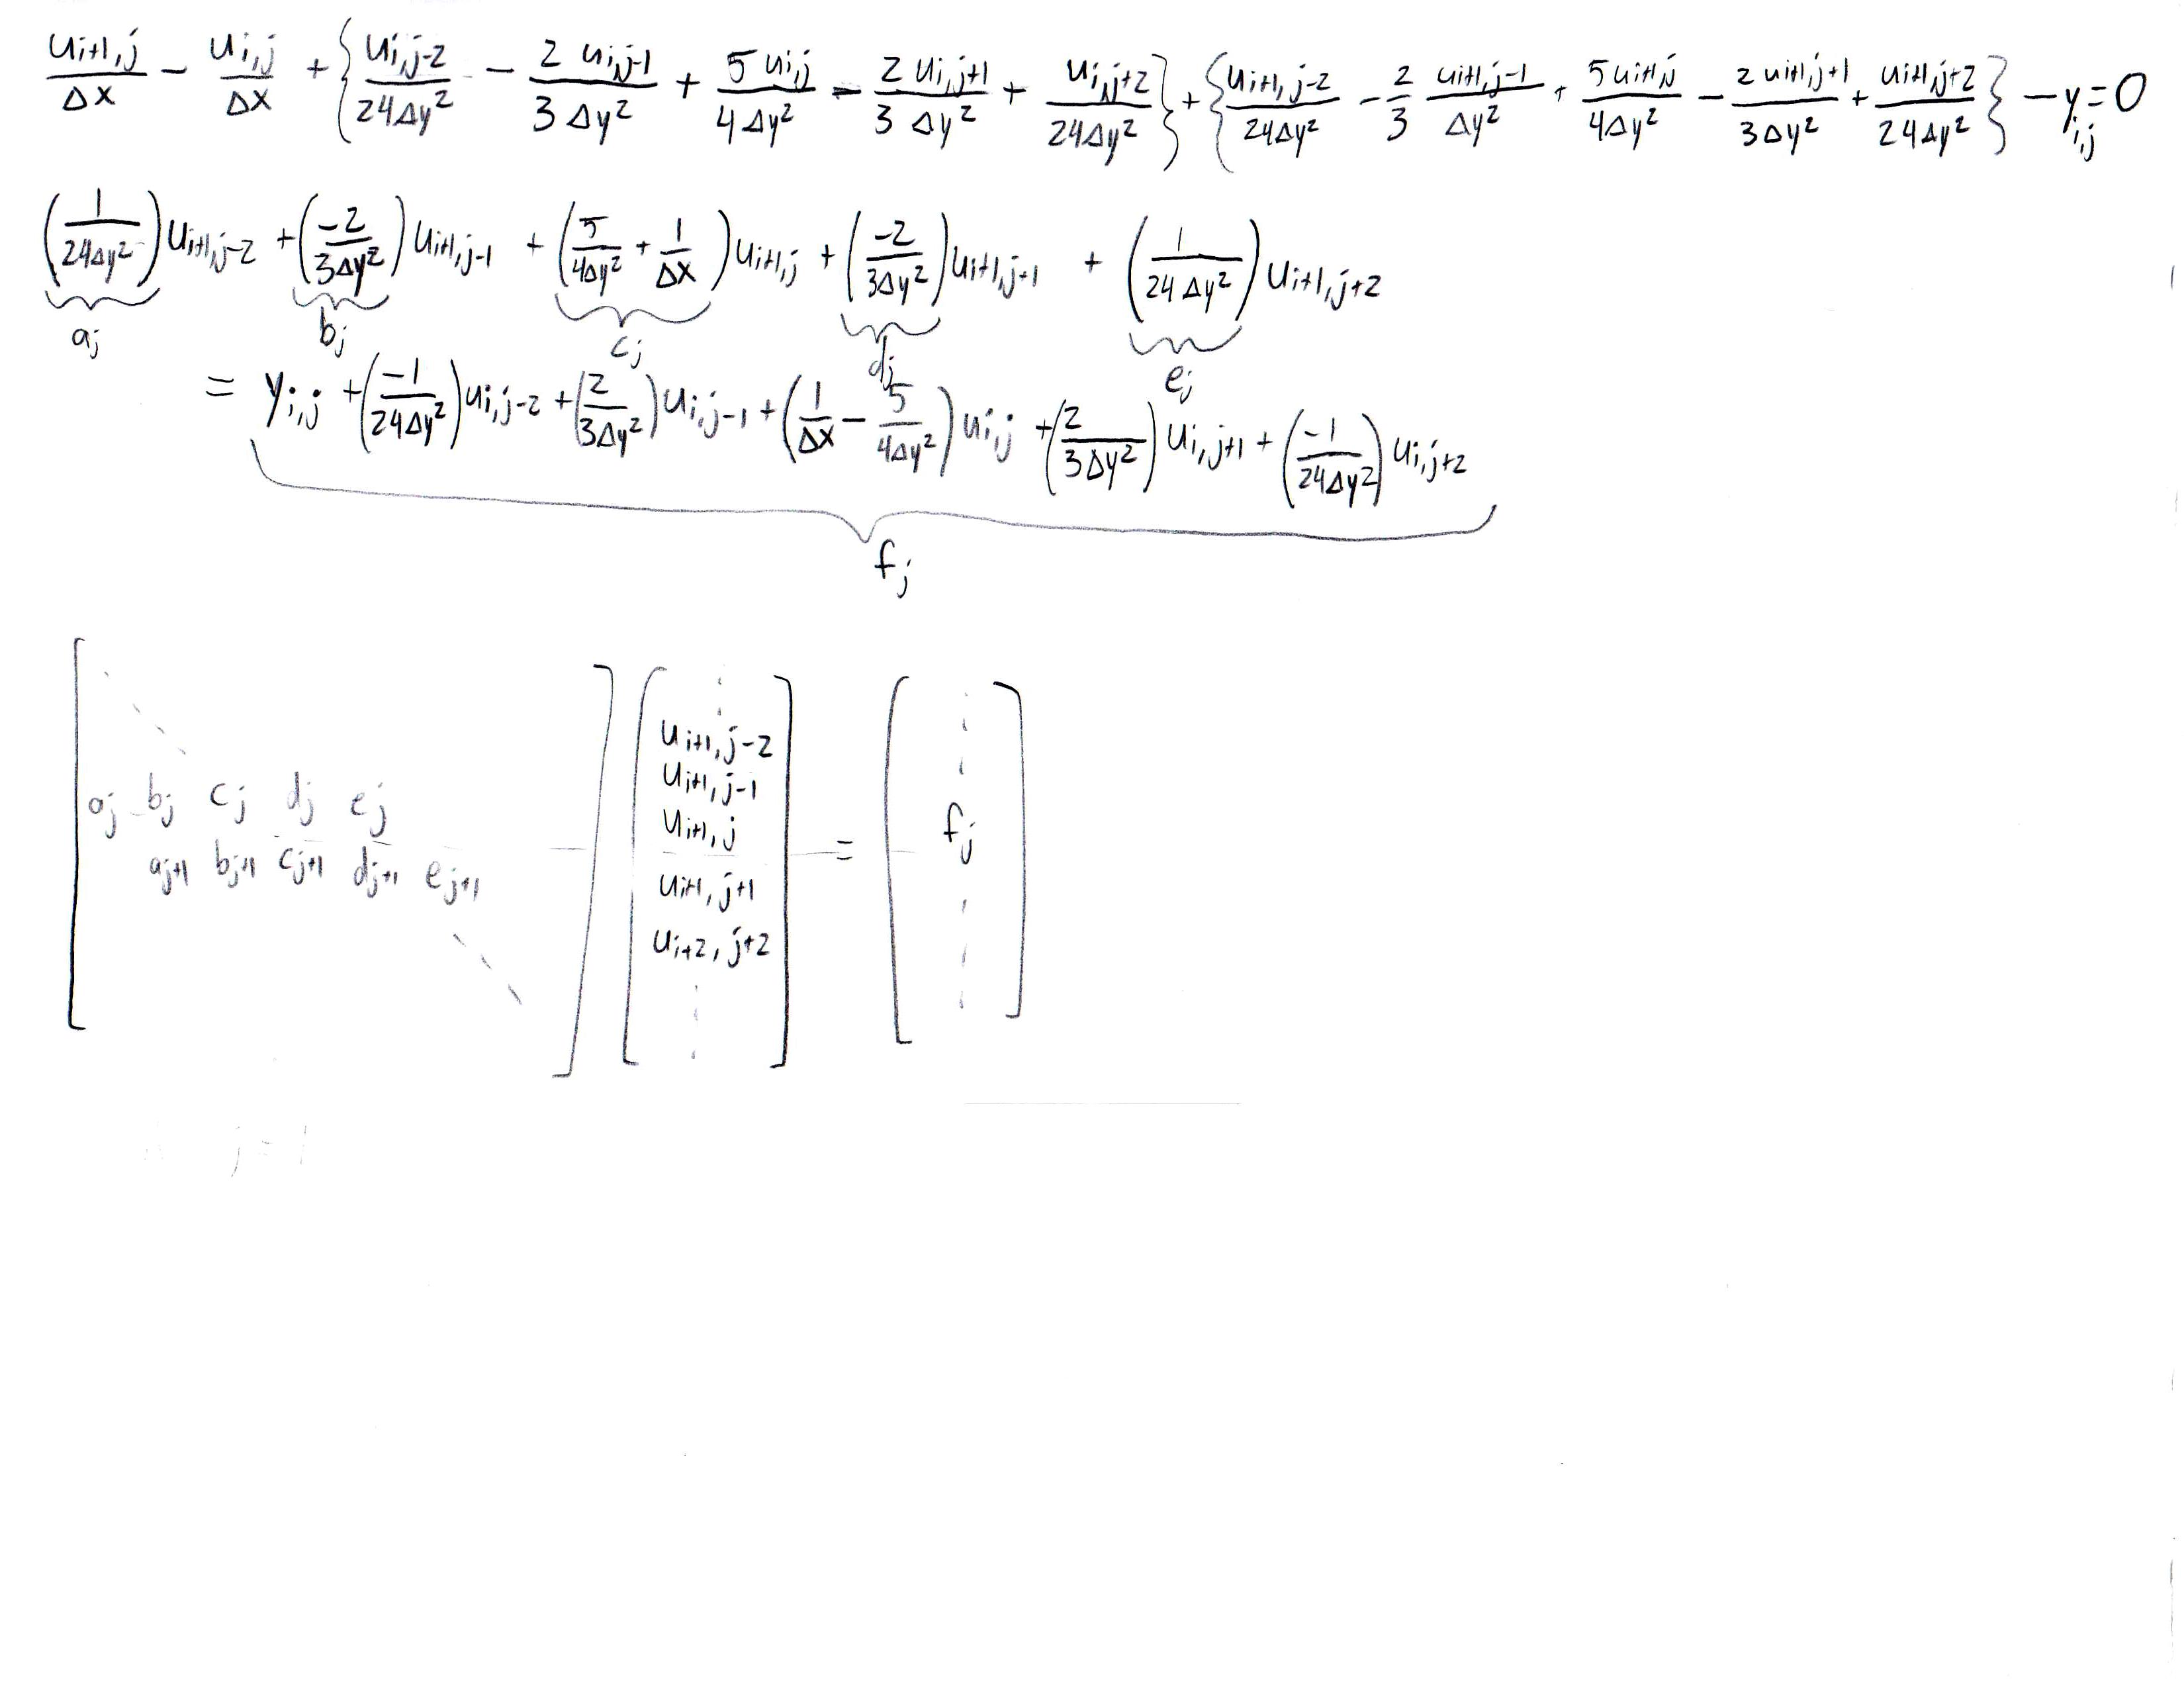 \frac{u_{i+1,j}}{\Delta x} - \frac{u_{i,j}}{\Delta x} + \left\{ \frac{u_{i,j-2}}{24\Delta y^2} - \frac{2 u_{i,j-1}}{3\Delta y^2} + \frac{5 u_{i,j}}{4\Delta y^2} - \frac{2 u_{i,j+1}}{3\Delta y^2} + \frac{u_{i,j+2}}{24\Delta y^2} \right\} + \left\{ \frac{u_{i+1,j-2}}{24\Delta y^2} - \frac{2}{3} \frac{u_{i+1,j-1}}{\Delta y^2} + \frac{5 u_{i+1,j}}{4\Delta y^2} - \frac{2 u_{i+1,j+1}}{3\Delta y^2} + \frac{u_{i+1,j+2}}{24\Delta y^2} \right\} - y_{i,j} = 0
\left(\frac{1}{24\Delta y^2}\right) u_{i+1,j-2} + \left(\frac{-2}{3\Delta y^2}\right) u_{i+1,j-1} + \left(\frac{5}{4\Delta y^2} + \frac{1}{\Delta x}\right) u_{i+1,j} + \left(\frac{-2}{3\Delta y^2}\right) u_{i+1,j+1} + \left(\frac{1}{24\Delta y^2}\right) u_{i+1,j+2}
a_j b_j c_j d_j e_j
= y_{i,j} + \left(\frac{-1}{24\Delta y^2}\right) u_{i,j-2} + \left(\frac{2}{3\Delta y^2}\right) u_{i,j-1} + \left(\frac{1}{\Delta x} - \frac{5}{4\Delta y^2}\right) u_{i,j} + \left(\frac{2}{3\Delta y^2}\right) u_{i,j+1} + \left(\frac{-1}{24\Delta y^2}\right) u_{i,j+2}
f_j
a_j b_j c_j d_j e_j
a_{j+1} b_{j+1} c_{j+1} d_{j+1} e_{j+1}
u_{i+1,j-2}
u_{i+1,j-1}
u_{i+1,j}
u_{i+1,j+1}
u_{i+2,j+2}
=
f_j